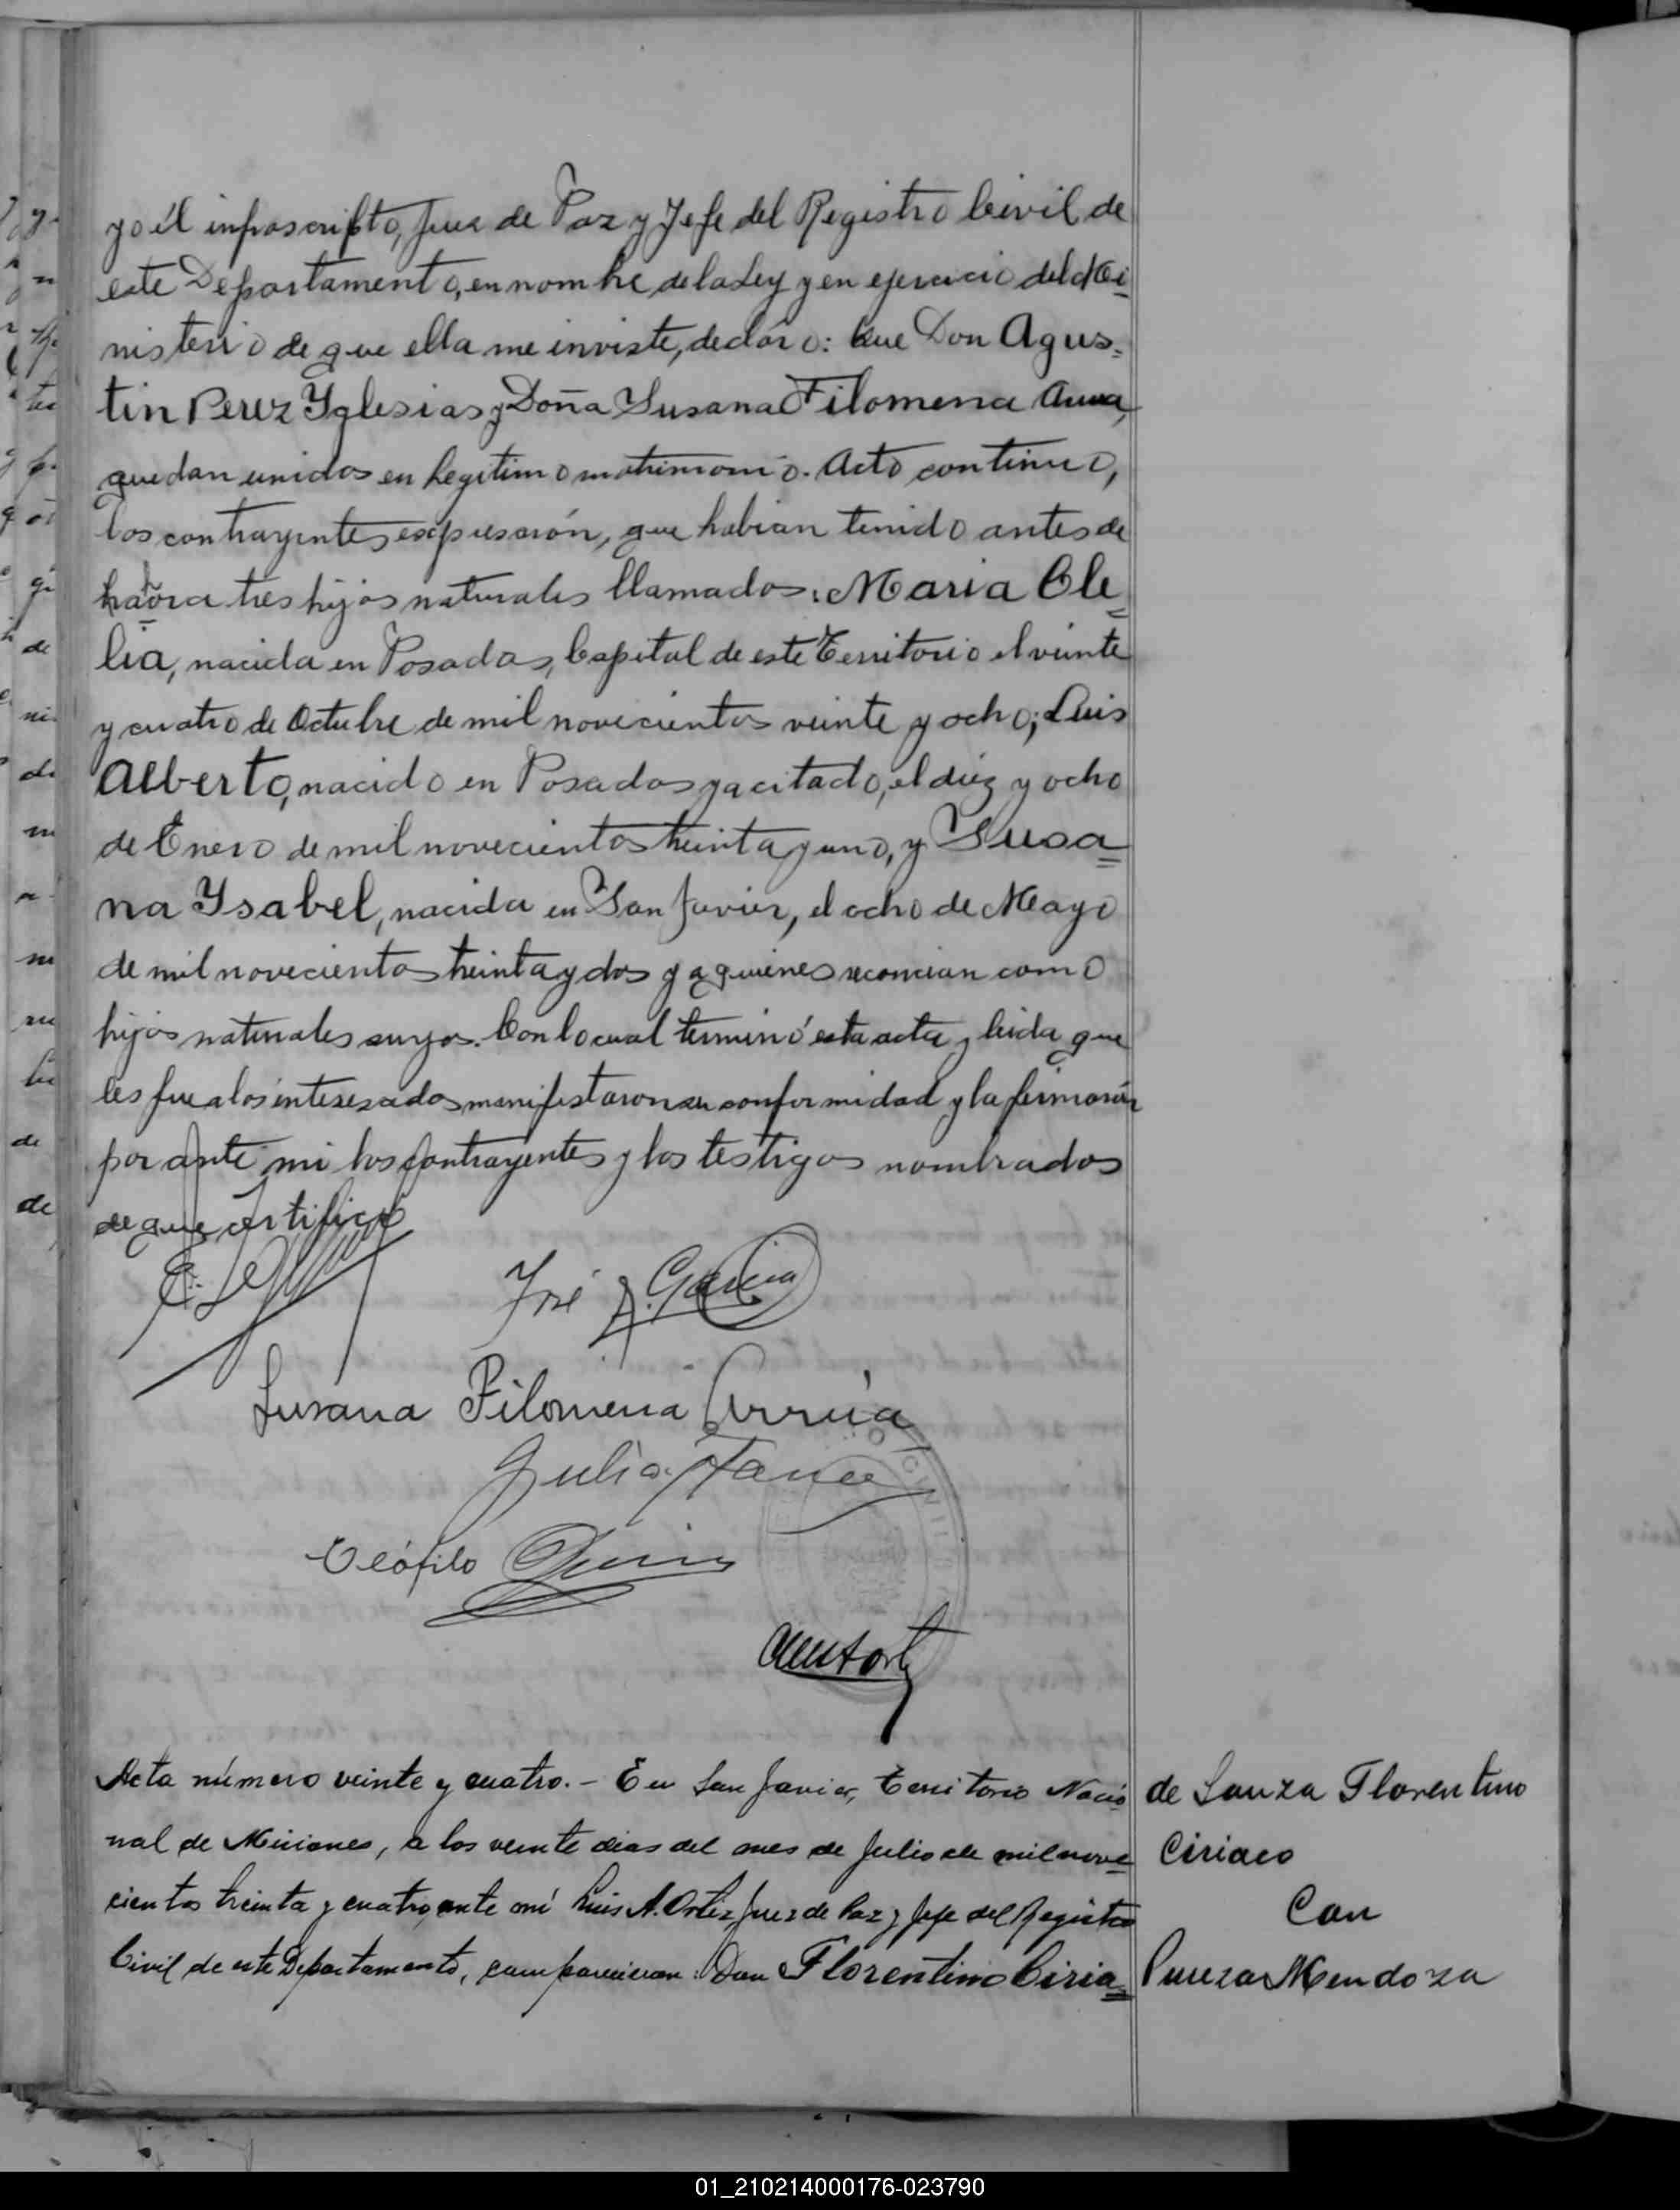 yo él infrascripto, Juez de Paz y Jefe del Registro Civil de
este Departamento, en nombre de la Ley y en ejercicio del Mi=
nisterio de que ella me inviste, declaro: Que Don Agus=
tin Perez Yglesias y Doña Susana Filomena
quedan unidos en legitimo matrimonio. Acto continuo,
los contrayentes expusarón, que habian tenido antes de
hahora tres hijos naturales llamados: Maria Cle=
lia, nacida en Posadas, Capital de este Territorio el veinte
y cuatro de Octubre de mil novecientos veinte y ocho; Luis
Alberto, nacido en Posadas ya citado, el diez y ocho
de Enero de mil novecientos treinta y uno, y Susa=
na Ysabel, nacida en San Javier, el ocho de Mayo
de mil novecientos treinta y dos y a quienes reconocian como
hijos naturales suyos. Con lo cual terminó esta acta y leida que
les fue a los interesados manifestaron su conformidad y la firmarón
por ante mi los contrayentes y los testigos nombrados
de que certifico
José García
Susana Filomena Arrúa
Julia
Teófilo
Acta número veinte y cuatro.- En San Javier, Territorio Nacio=
nal de Misiones, a los veinte dias del mes de Julio de mil nove=
cientos treinta y cuatro, ante mí Luis A. Ortiz, Juez de Paz y Jefe del Registro
Civil de este Departamento, comparecieron: Don Florentino Ciria=
de Souza Florentino
Ciriaco
Con
Pureza Mendoza
01_210214000176-023790